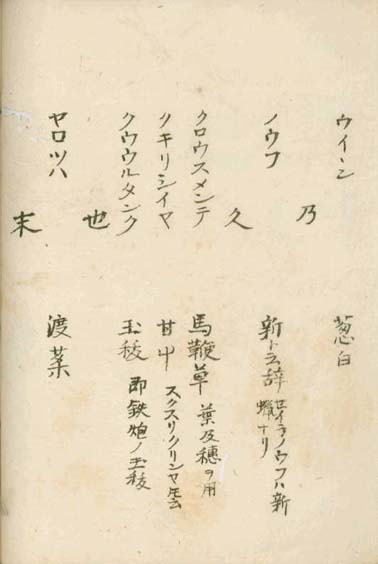 ウイーン 葱白
乃
ノウフ 新ト云辞 セイラノウフハ新蠟ナリ
久
クロウスメンテ 馬鞭草 葉及穂ヲ用
クキリシイヤ 甘艸 スクスリクリシヤ 云
クウウルタンク 玉稜 即鉄炮ノ玉稜
也
ヤロツハ 渡葉
末